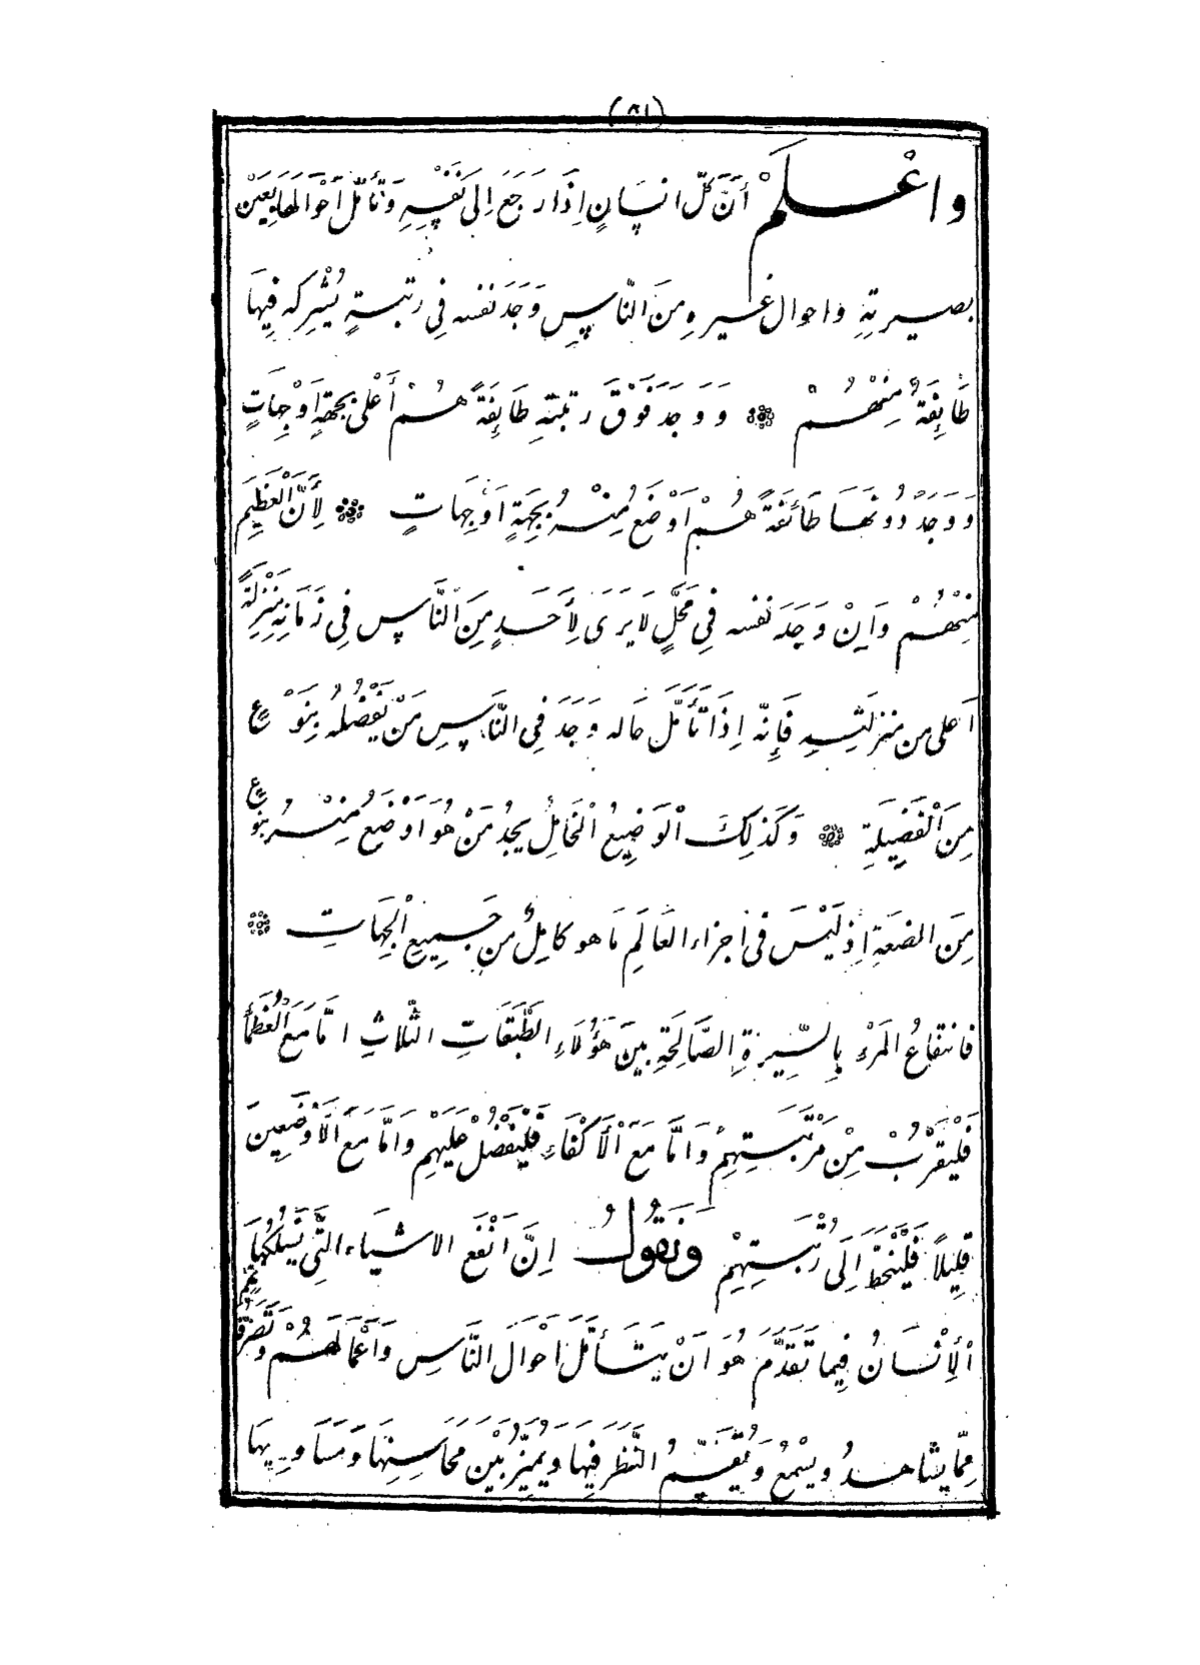 (٥١)
واعْلَمْ أَنَّ كُلَّ انسَانٍ إِذَا رَجَعَ اِلىَ نَفْسِهِ وَتَأَمَّلَ اَحْوَالَهَا بِعَيْنِ
بصيرتِهِ واحوال غيرهِ مِنَ النَّاسِ وَجَدَ نفسه فِى رتبةٍ يُشْرِكه فِيهَا
طَايِفَةٌ مِنْهُمْ ۞ وَوَجَدَ فَوْقَ رتبتهِ طَايِفَةً هُمْ أَعْلى بجهةٍ اَوْجِهَاتٍ
وَوَجَدَ دُونَهَا طَائفَةً هُمْ اَوْضَعُ مِنْهُ بِجَهَةٍ اَوجِهَاتٍ ۞ لِأَنَّ الْعَظِيمَ
مِنْهُمْ وَاِنْ وَجَدَ نفسه فِى مَحَلٍّ لَا يَرَى لِأَحَدٍ مِنَ النَّاسِ فِى زَمَانِهِ مَنْزِلَةً
اَعلى من منزلتِهِ فَاِنَّه اِذَا تَأَمَّلَ حَاله وَجَدَ فِى النَّاسِ مَنْ يَفْضُلهُ بِنَوْعٍ
مِنَ الْفَضِيلَةِ ۞ وَكَذلِكَ الْوَضِيعُ الْخَامِلُ يجدُ مَنْ هُوَ اَوْضَعُ مِنْهُ بنوعٍ
مِنَ الضعَةِ اِذ لَيْسَ فى اجزاء العَالَمِ مَا هو كامِلٌ من جَمِيعِ الْجِهَاتِ ۞
فانتفاعُ المَرْءِ بِالسِّيرَةِ الصَّالِحَةِ بينَ هَؤُلَاءِ الطَّبَقَاتِ الثَّلاثِ امَّا مَعَ الْعُظَمَاءِ
فَلْيَقْرُبْ مِنْ مَرْتَبَتِهِمْ وَاَمَّا مَعَ الْاَكْفَاءِ فَلْيَفْضُلْ عَلَيْهِمْ وَامَّا مَعَ الْاَوْضَعِينَ
قلِيلاً فَلْيَنْحَطَّ اِلَى رُتْبَتِهِمْ وَنَقُولُ اِنَّ اَنْفَعَ الاشيَاء الَّتِى يَسْلُكُهَا
الْاِنْسَانُ فِيما تَقَدَّمَ هُوَ اَنْ يَتَأَمَّلَ اَحْوَالَ النَّاسِ وَاَعْمَالَهُمْ وَتَصَرُّفَهُمْ
مِمَّا يشاهدُ ويسْمعُ وَيُنْعِمُ النَّظَرَ فِيهَا وَيُمَيِّزُ بَيْنَ مَحَاسِنِهَا وَمَسَاوِيهَا